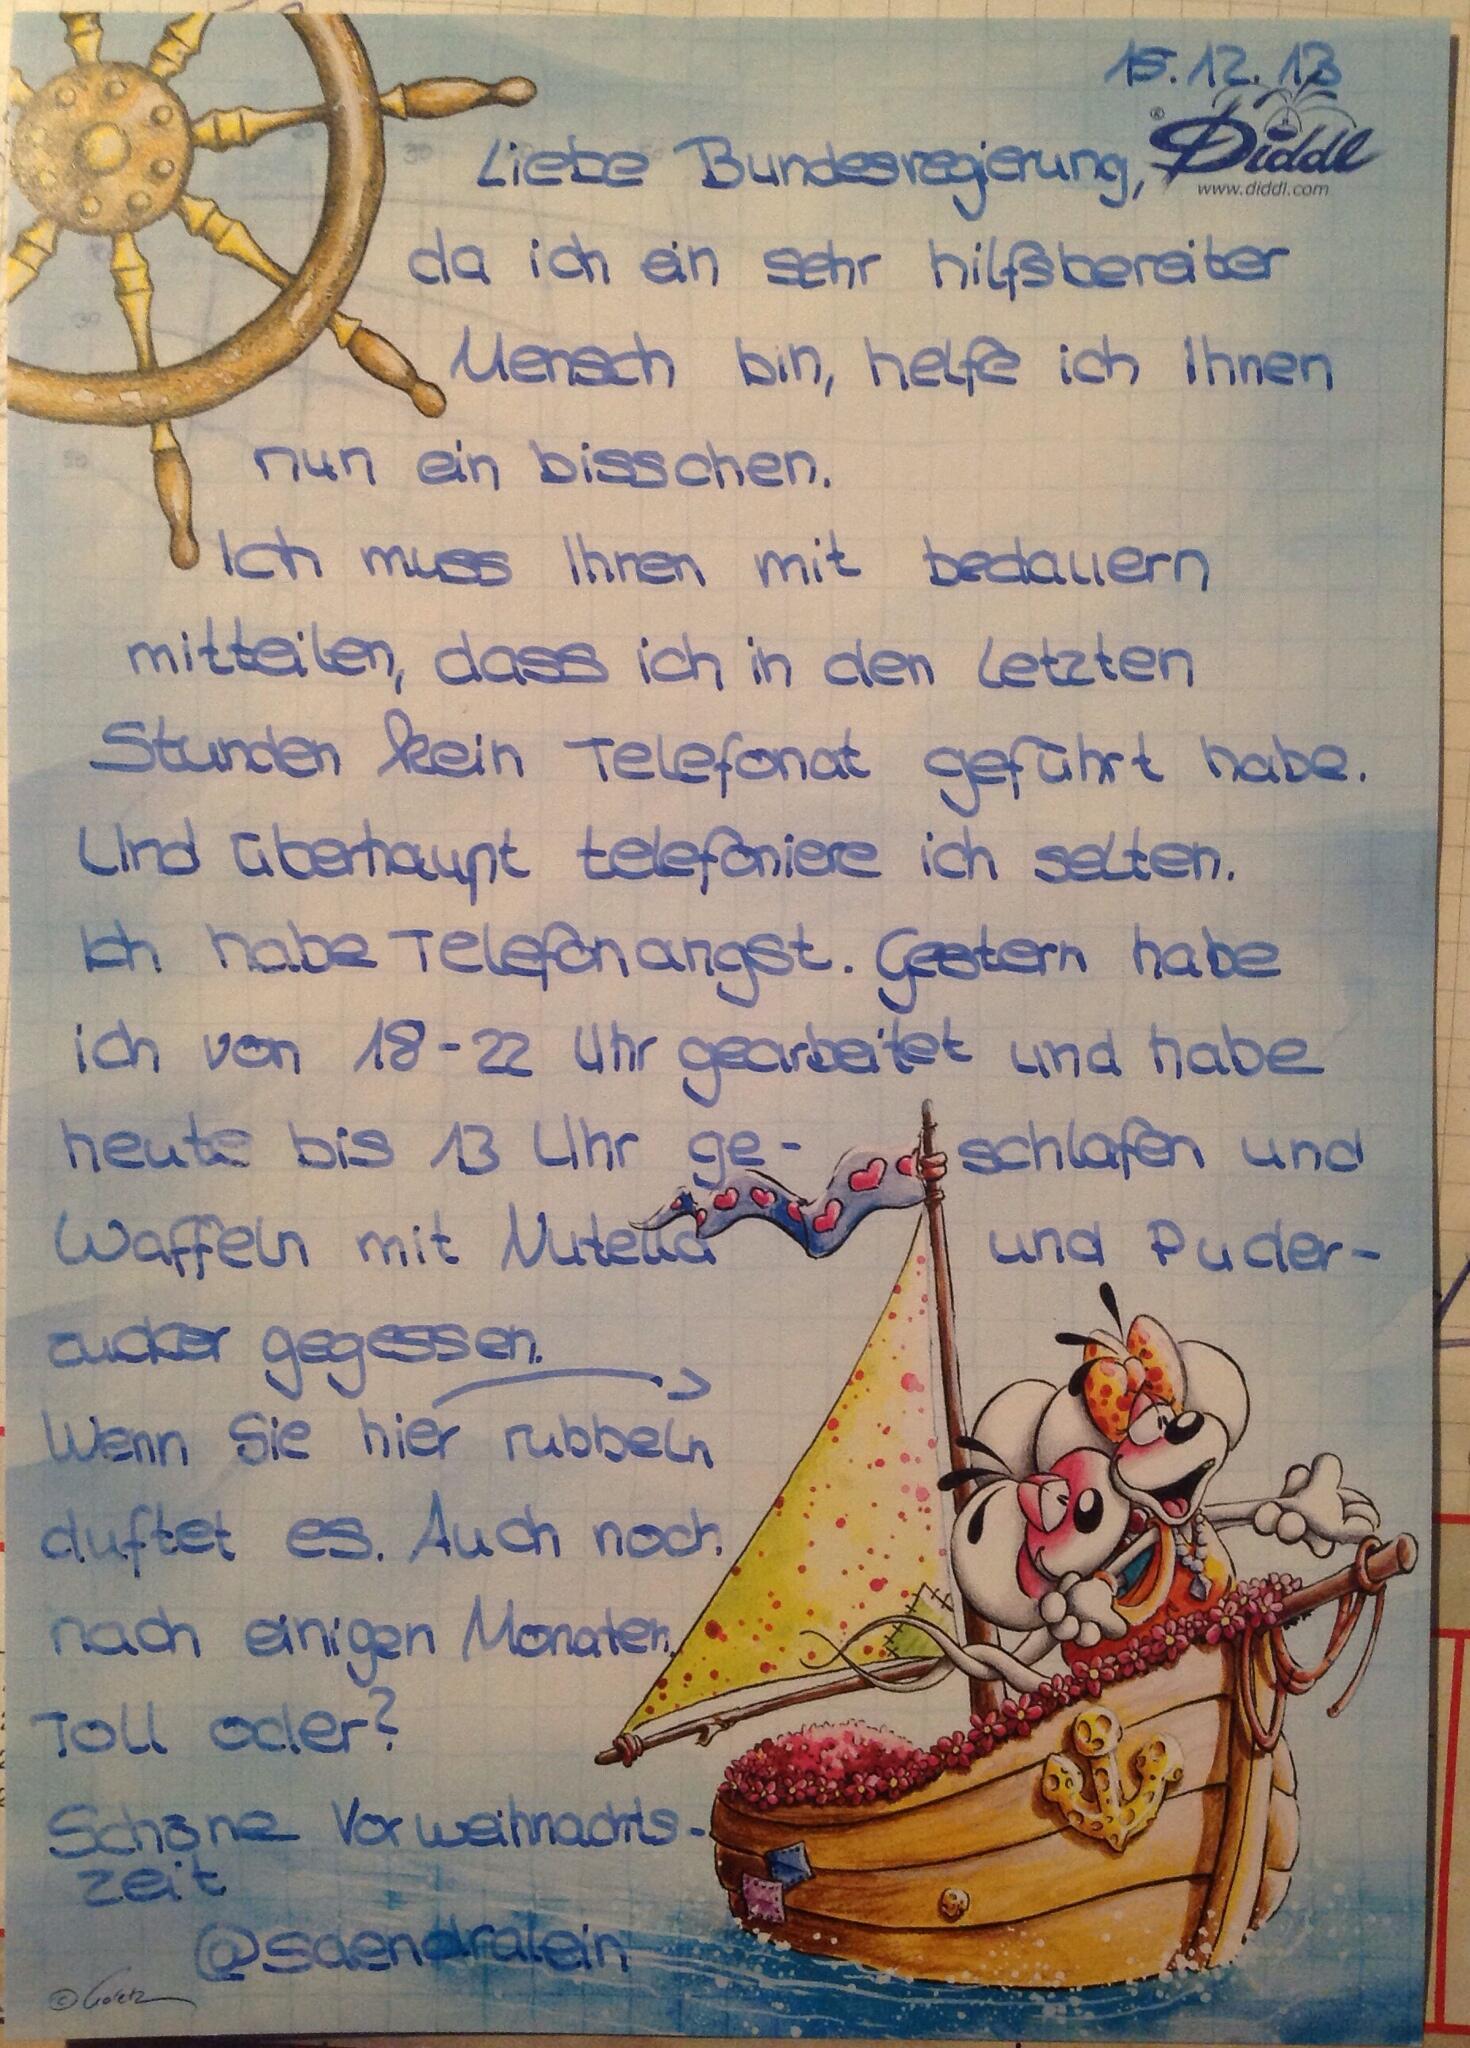 15.12.13
® Diddl
www.diddl.com
Liebe Bundesregierung,
da ich ein sehr hilfsbereiter
Mensch bin, helfe ich Ihnen
nun ein bisschen.
Ich muss Ihnen mit bedauern
mitteilen, dass ich in den letzten
Stunden kein Telefonat geführt habe.
Und überhaupt telefoniere ich selten.
Ich habe Telefonangst. Gestern habe
ich von 18-22 Uhr gearbeitet und habe
heute bis 13 Uhr ge- schlafen und
Waffeln mit Nutella und Puder-
zucker gegessen.
Wenn Sie hier rubbeln
duftet es. Auch noch
nach einigen Monaten.
Toll oder?
Schöne Vorweihnachts-
zeit
@saendralein
© Goletz